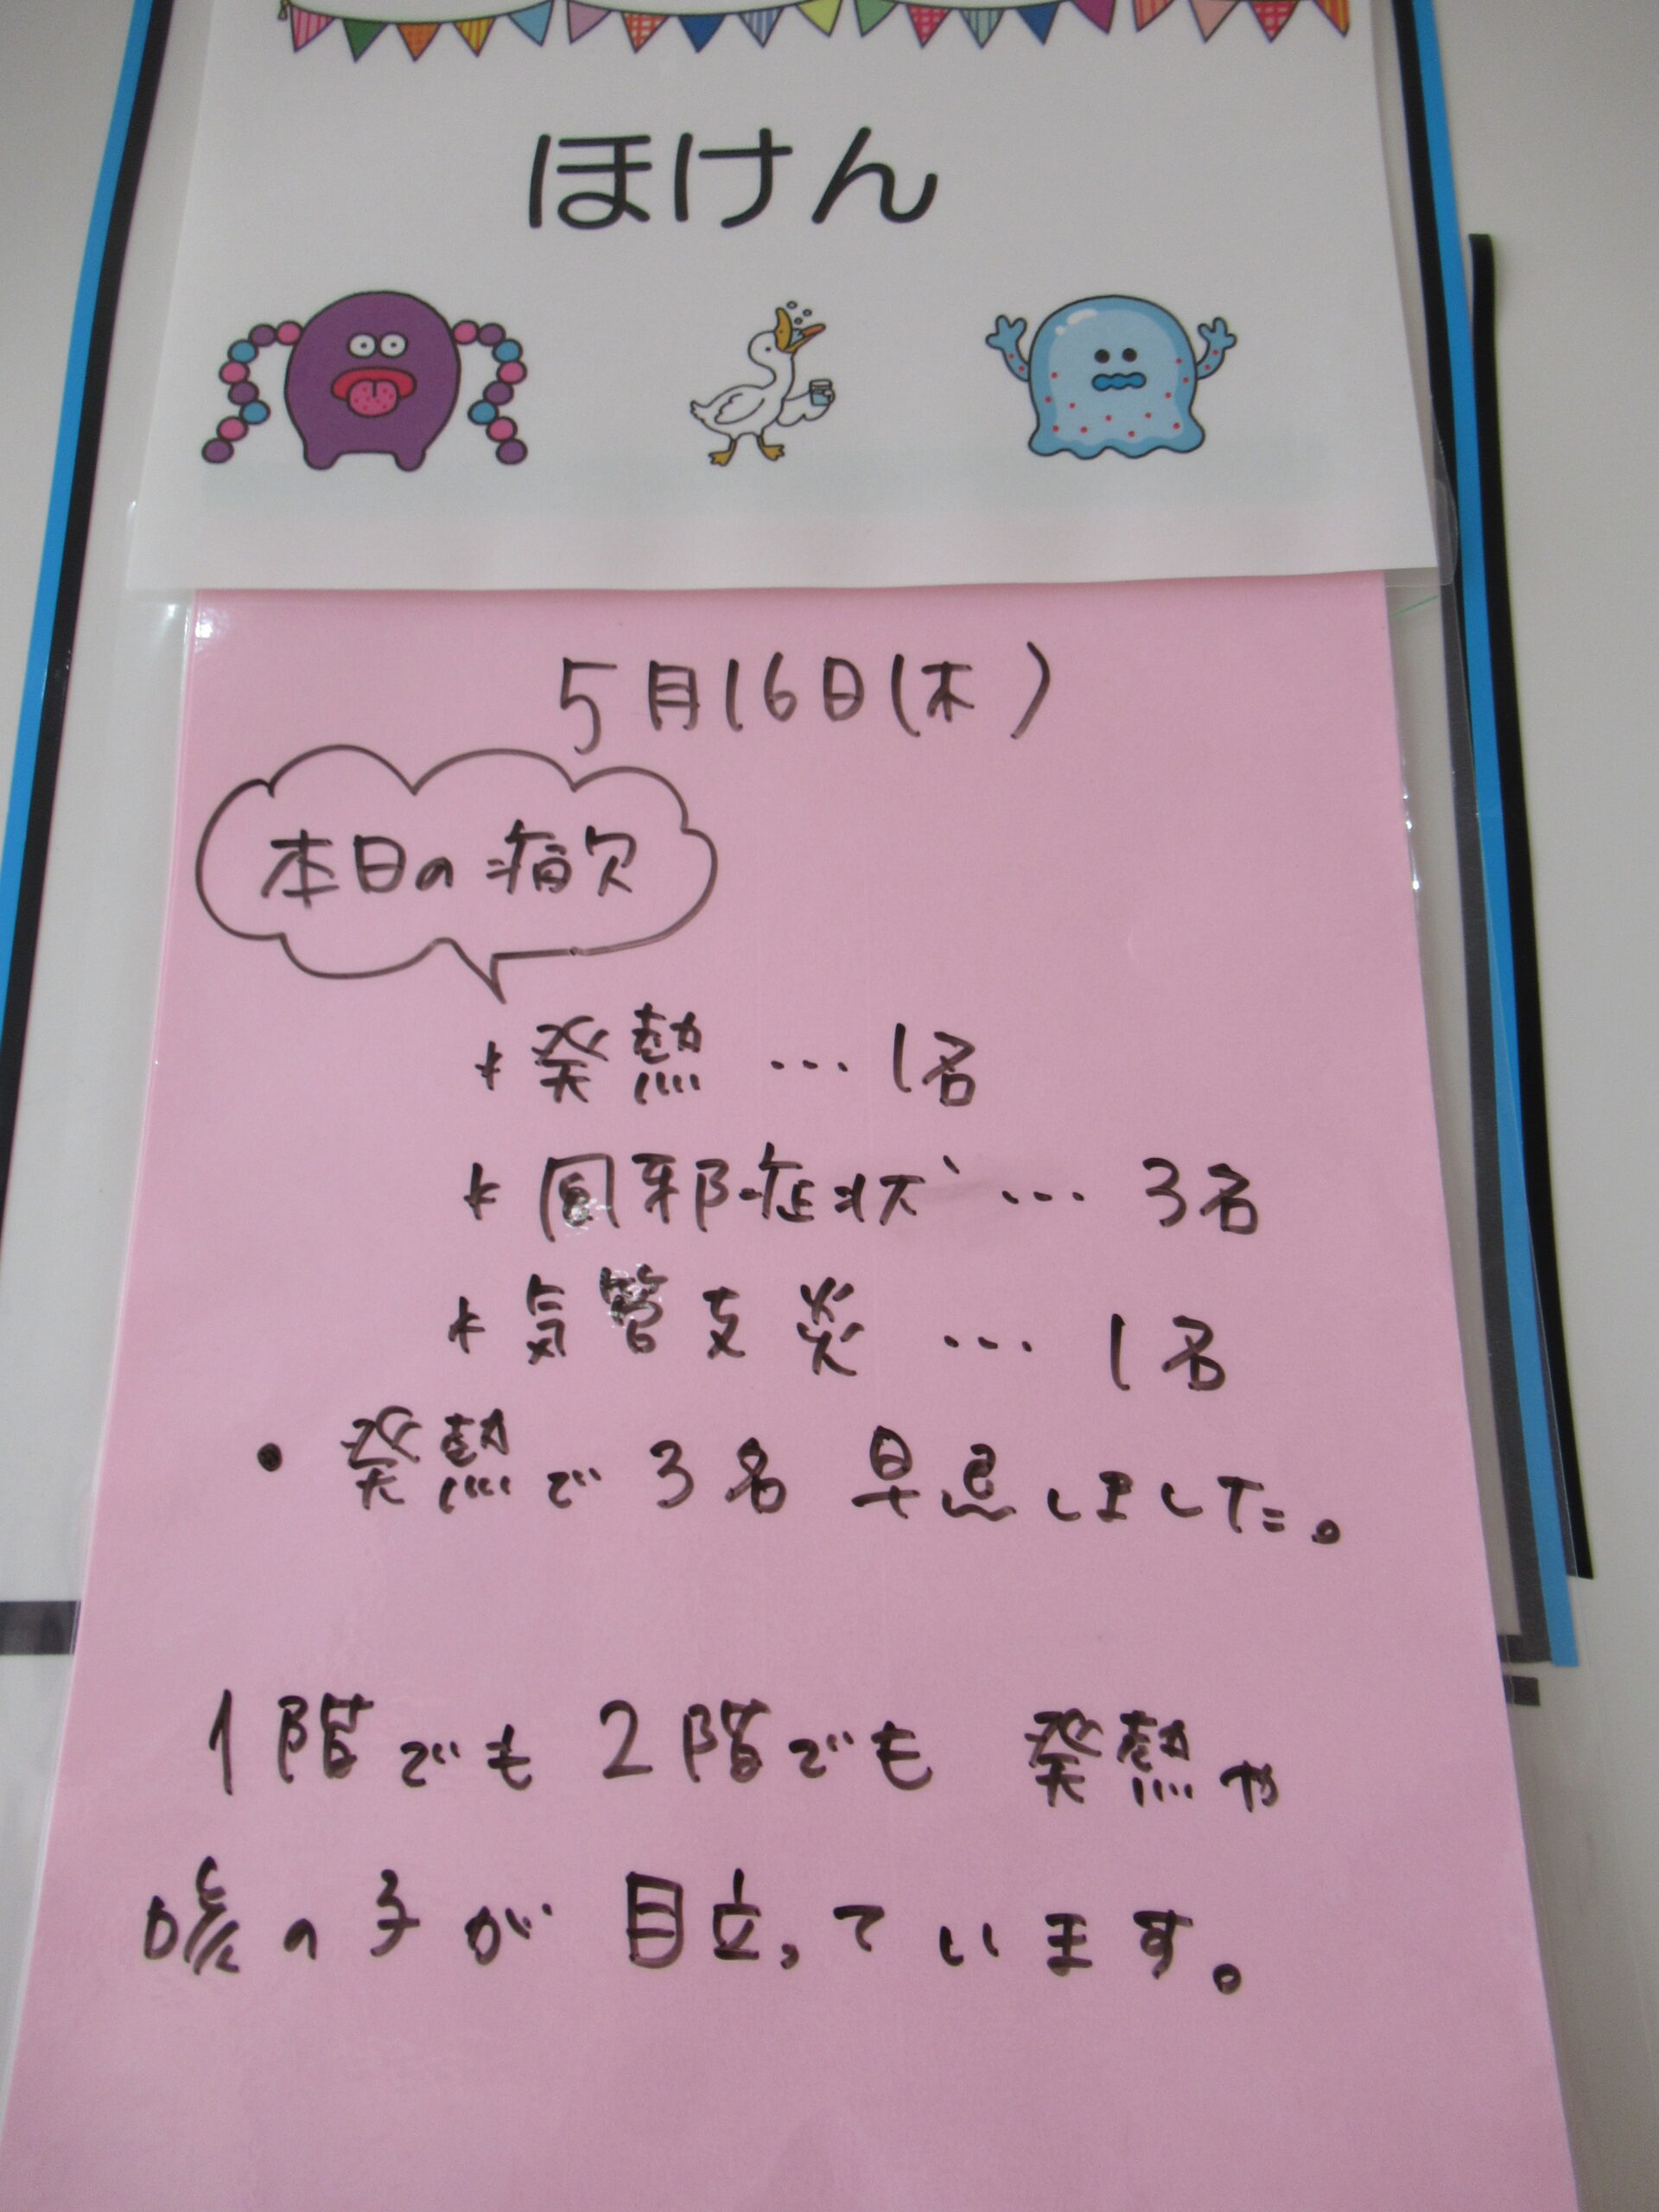 ほけん
5月16日(木)
本日の病欠
* 発熱 … 1名
* 風邪症状 … 3名
* 気管支炎 … 1名
• 発熱で3名 早退しました。
1階でも2階でも 発熱や
咳の子が 目立っています。